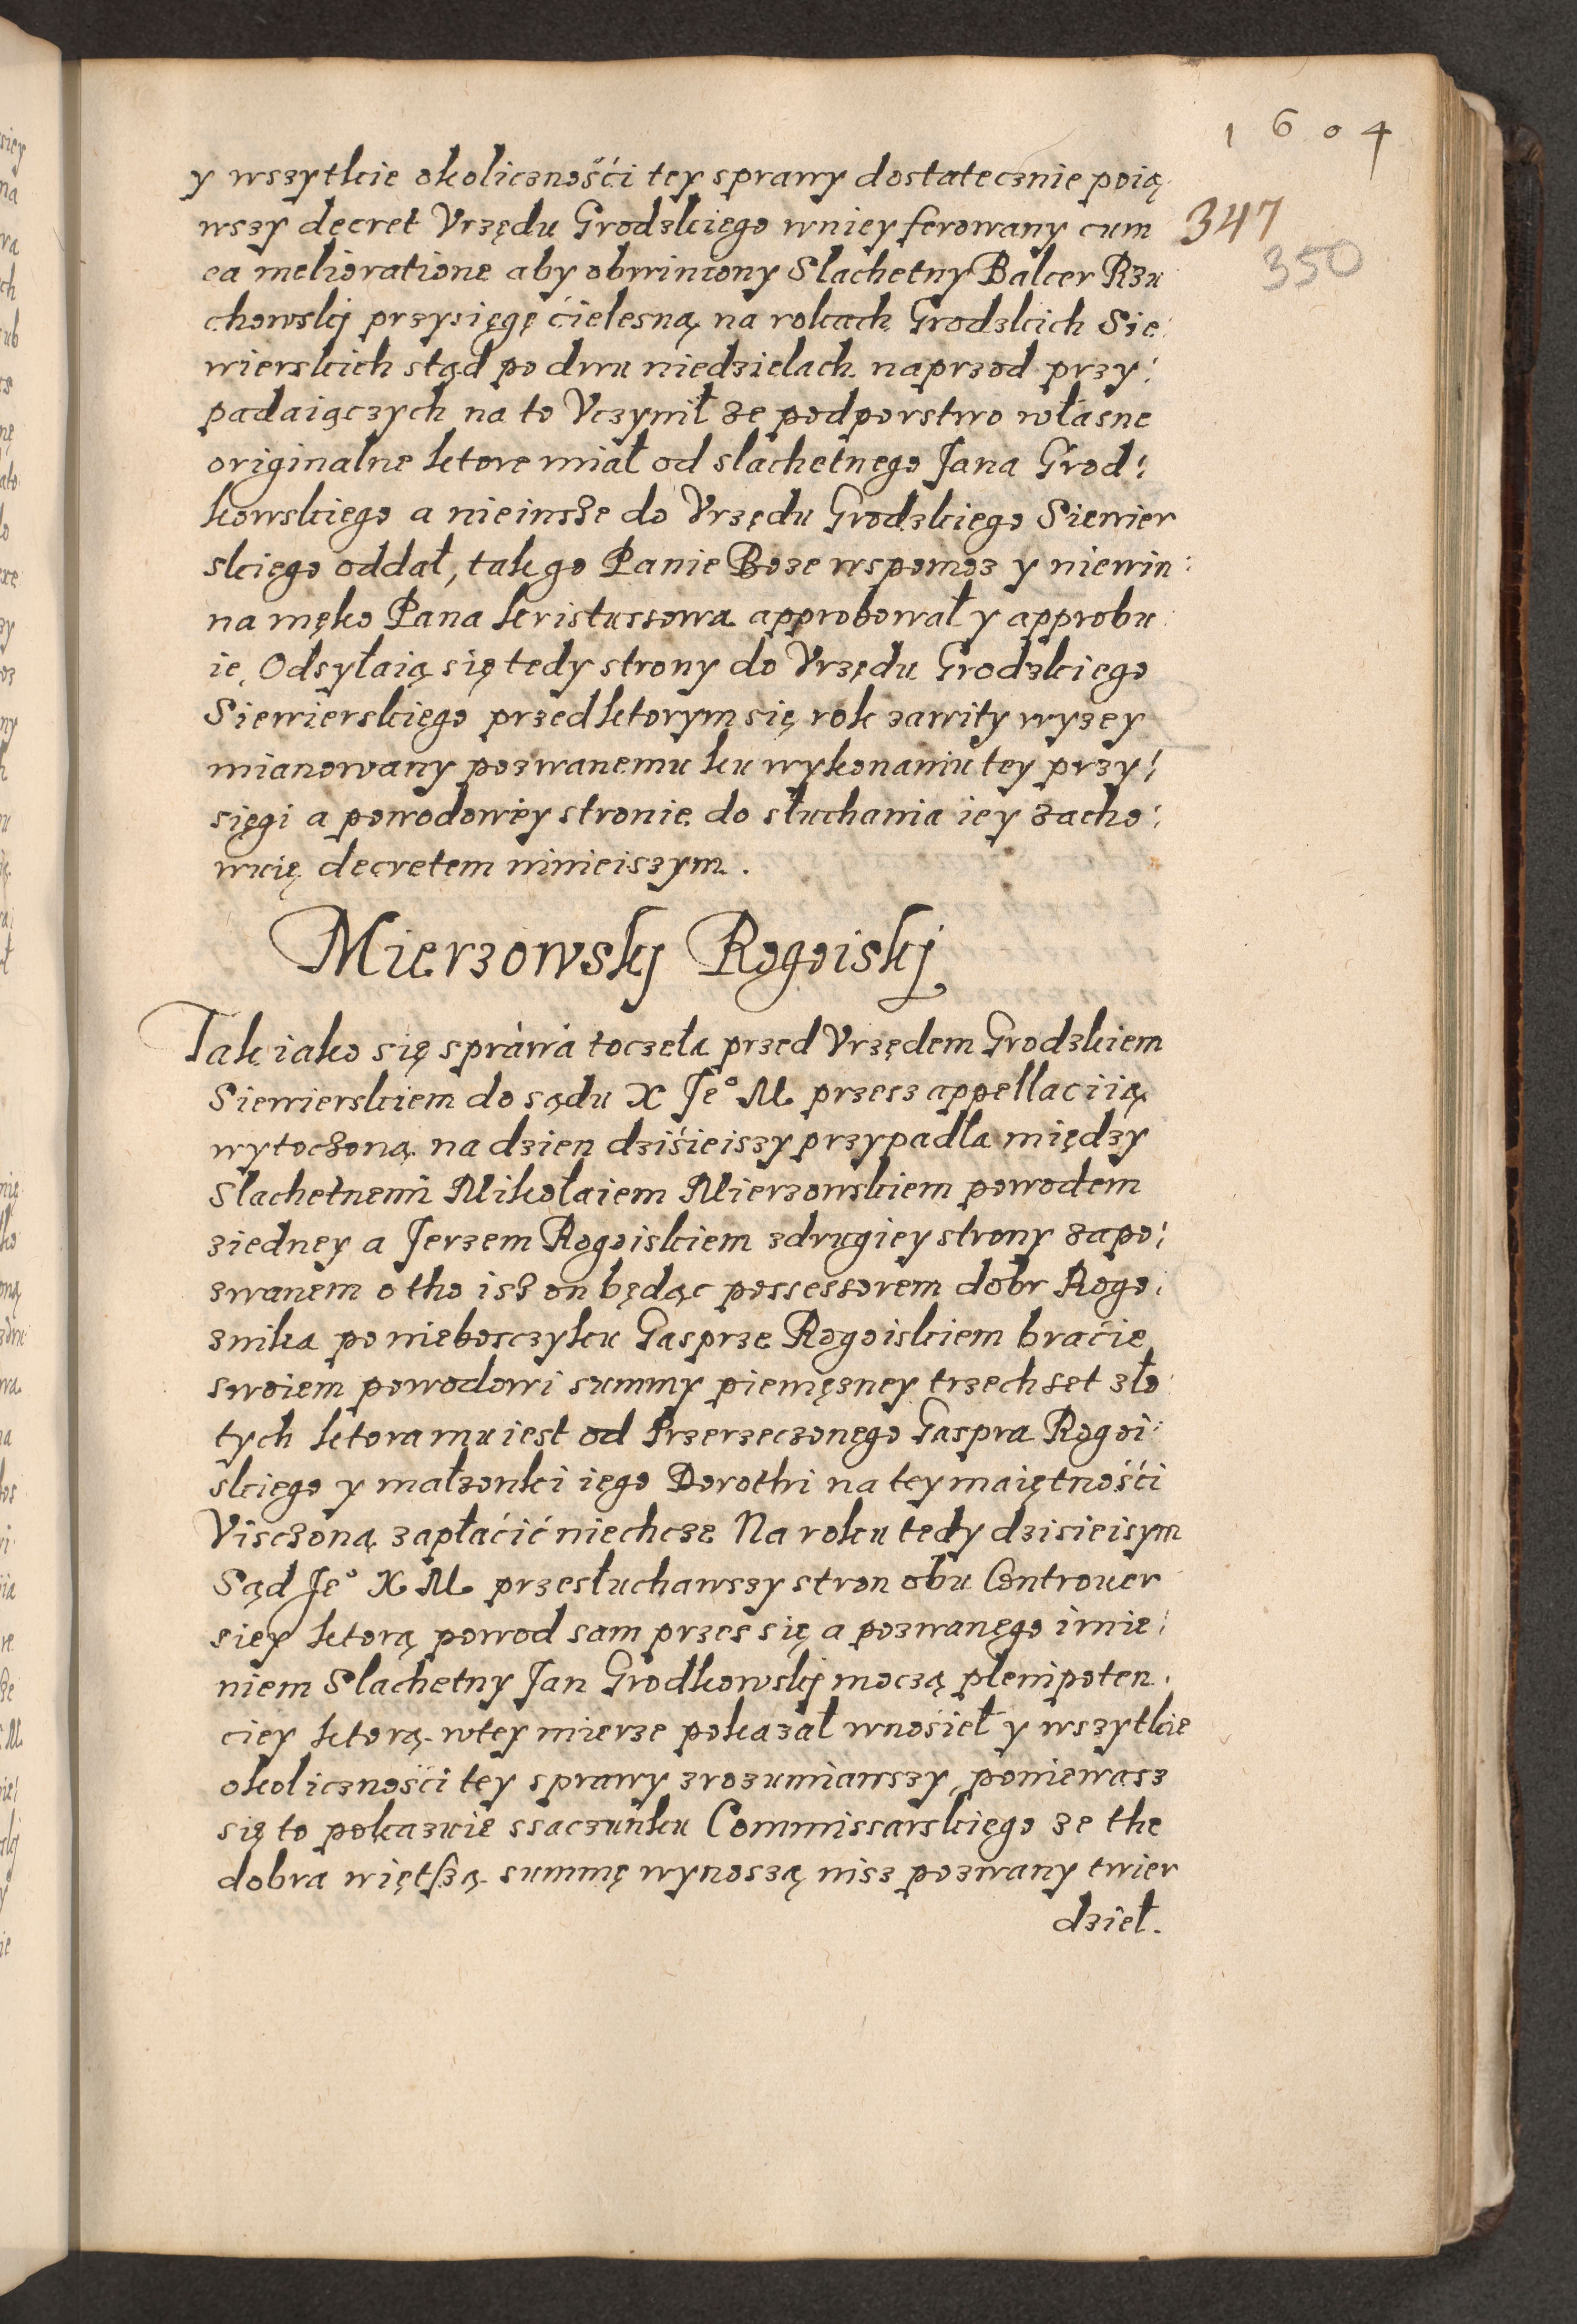 1604
y wszytkie okolicznośći tey sprawy dostatecznie poią
347
wszy decret Vrzędu Grodzkiego wniey ferowany cum
350
ea melioratione aby obwiniony Slachetny Balcer Rzu
chowskj przysięgę ćielesną na rokach Grodzkich Sie:
wierskich stąd po dwu niedzielach naprzod przy:
padaiączych na to Vczynił że podporstwo własne
originalne ktore miał od slachetnego Jana Grod:
kowskiego a nieinsze do Vrzędu Grodzkiego Siewier
skiego oddał, tak go Panie Boze wspomoz y niewin:
na męko Pana kristussowa approbował y approbu
ie, Odsyłaią się tedy strony do Vrzędu Grodzkiego
Siewierskiego przed ktorym się rok zawity wyzey
mianowany pozwanemu ku wykonaniu tey przy:
sięgi a powodowey stronie do słuchania iey zacho:
wuię decretem ninieiszym.
Mierzowskj Rogoiskj
Tak iako się spráwá toczeła przed Vrzędem Grodzkiem
Siewierskiem do sądu X Je° M przesz appellaciią
wytoczoną na dzien dziśieiszy przypadła między
Slachetnemi Mikołaiem Mierzowskiem powodem
ziedney a Jerzem Rogoiskiem zdrugiey strony zapo:
zwanem o tho isz on będąc possessorem dobr Rogo:
znika po nieboszczyku Gasprze Rogoiskiem braćie
swoiem powodowi summy pieniężney trzech set zło
tych ktora mu iest od Przerzeczonego Gaspra Rogoi:
skiego y małzonki iego Dorothi na tey maiętnośći
Visczoną zapłaćić niechcze Na roku tedy dzisieisym
Sąd Je° X M przesłuchawszy stron obu Controuer
siey ktorą powod sam przes się a pozwanego imie:
niem Slachetny Jan Grodkowskj moczą plenipoten:
ciey ktorą wtey mierze pokazał wnośieł y wszytkie
okolicznośći tey sprawy zrozumiawszy, poniewasz
się to pokazuie ssaczunku Commissarskiego ze the
dobra więtszą summę wynoszą nisz pozwany twier
dzieł.